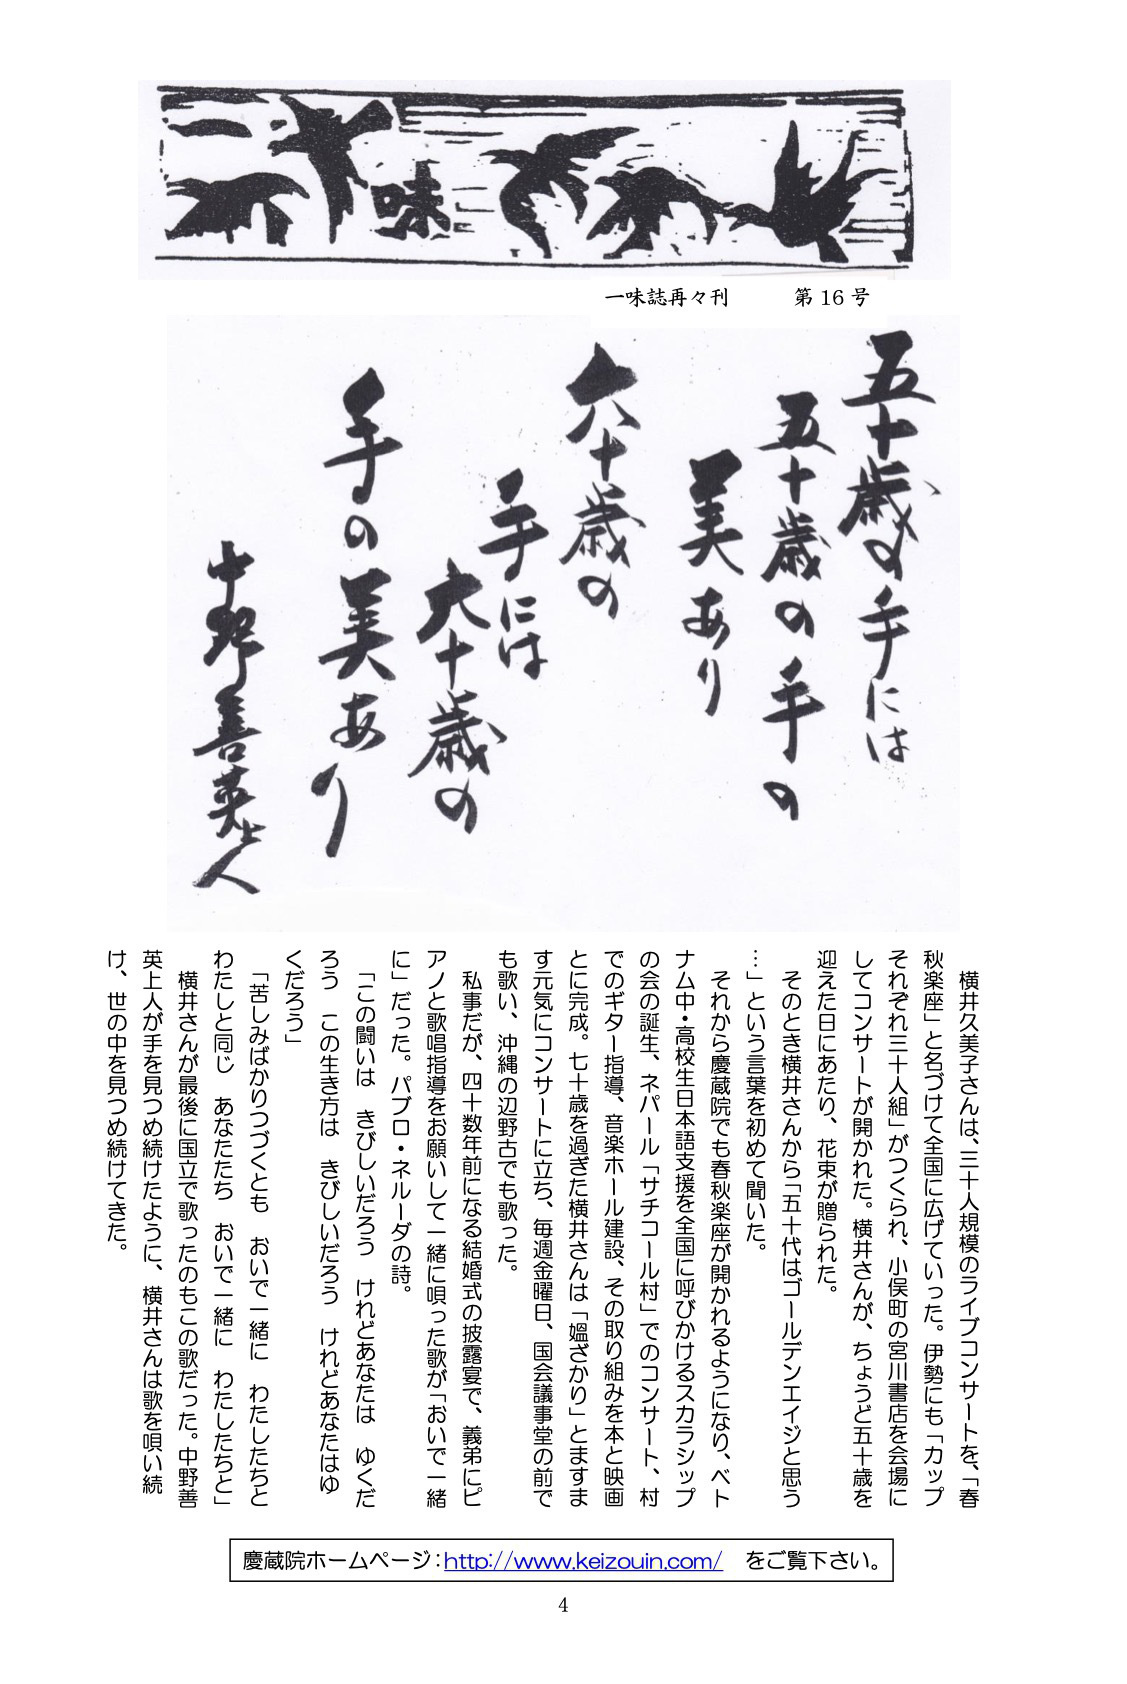 一味
一味誌再々刊　第16号
五十歳の手には
五十歳の手の
美あり
六十歳の
手には
六十歳の
手の美あり
中野善英上人
横井久美子さんは、三十人規模のライブコンサートを、「春
秋楽座」と名づけて全国に広げていった。伊勢にも「カップ
それぞれ三十人組」がつくられ、小俣町の宮川書店を会場に
してコンサートが開かれた。横井さんが、ちょうど五十歳を
迎えた日にあたり、花束が贈られた。
そのとき横井さんから「五十代はゴールデンエイジと思う
…」という言葉を初めて聞いた。
それから慶蔵院でも春秋楽座が開かれるようになり、ベト
ナム中・高校生日本語支援を全国に呼びかけるスカラシップ
の会の誕生、ネパール「サチコール村」でのコンサート、村
でのギター指導、音楽ホール建設、その取り組みを本と映画
とに完成。七十歳を過ぎた横井さんは「媼ざかり」とますま
す元気にコンサートに立ち、毎週金曜日、国会議事堂の前で
も歌い、沖縄の辺野古でも歌った。
私事だが、四十数年前になる結婚式の披露宴で、義弟にピ
アノと歌唱指導をお願いして一緒に唄った歌が「おいで一緒
に」だった。パブロ・ネルーダの詩。
「この闘いは　きびしいだろう　けれどあなたは　ゆくだ
ろう　この生き方は　きびしいだろう　けれどあなたはゆ
くだろう」
「苦しみばかりつづくとも　おいで一緒に　わたしたちと
わたしと同じ　あなたたち　おいで一緒に　わたしたちと」
横井さんが最後に国立で歌ったのもこの歌だった。中野善
英上人が手を見つめ続けたように、横井さんは歌を唄い続
け、世の中を見つめ続けてきた。
慶蔵院ホームページ：http://www.keizouin.com/　をご覧下さい。
4